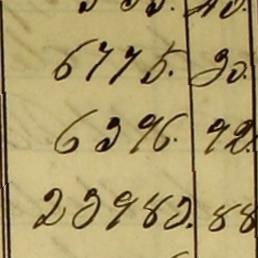 6775. 30.
6396. 92.
23983. 88